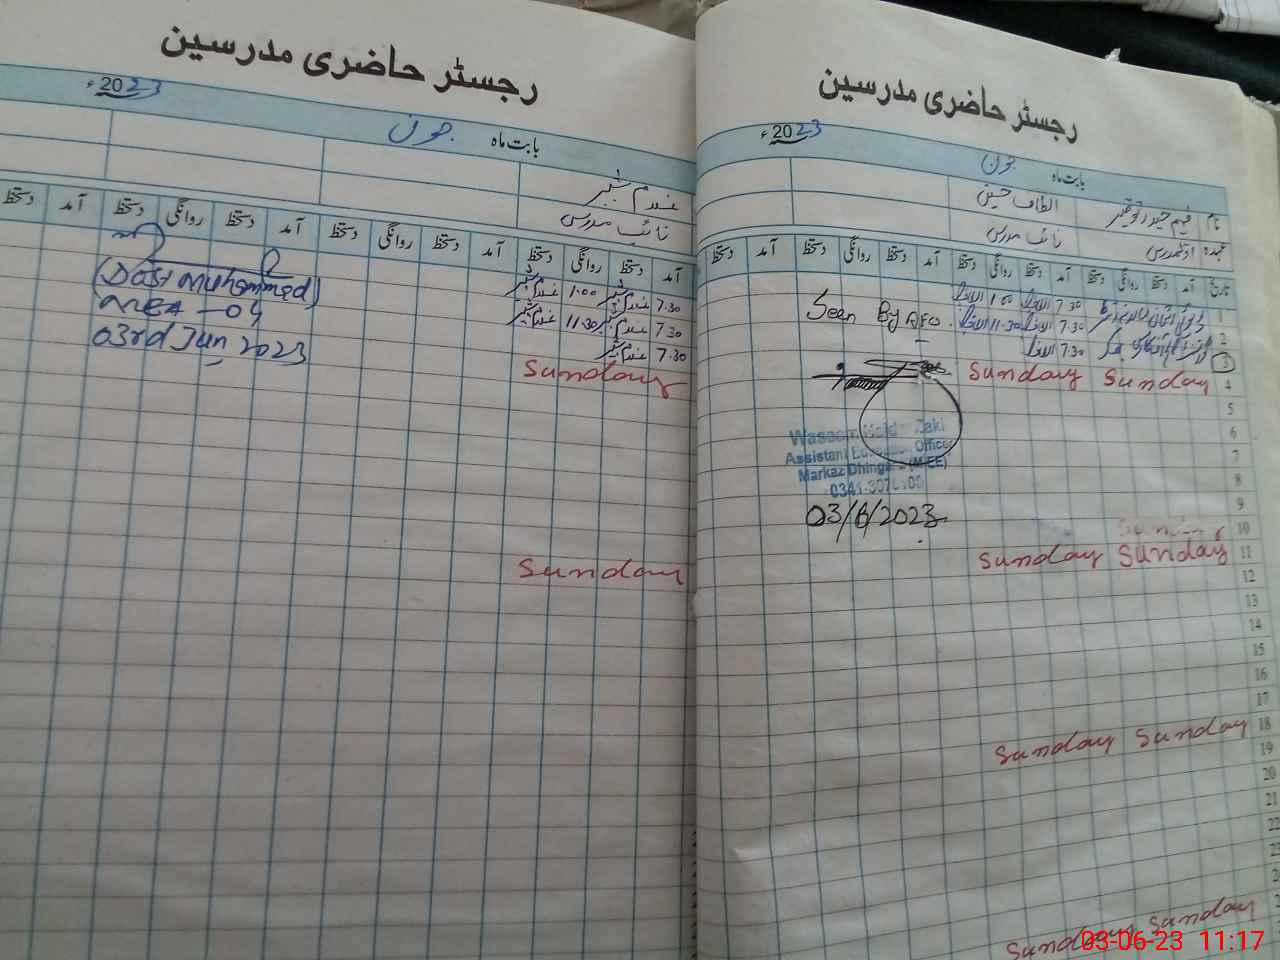 رجسٹر حاضری مدرسین
2023ء
بابت ماہ جون
نام
الطاف حسین
عہدہ
نائب مدرس
تاریخ آمد دستخط روانگی دستخط آمد دستخط روانگی دستخط آمد دستخط روانگی دستخط آمد دستخط
1
7.30
1.00
2
7.30
11.30
3
7.30
4
Sunday Sunday
5
6
7
8
9
10
11
Sunday Sunday
12
13
14
15
16
17
18
Sunday Sunday
19
20
21
22
23
Sunday Sunday
Seen By AEO
Assistant Education Officer
Markaz
03/6/2023
رجسٹر حاضری مدرسین
2023ء
بابت ماہ جون
غلام شبیر
نائب مدرس
آمد دستخط روانگی دستخط آمد دستخط روانگی دستخط آمد دستخط روانگی دستخط آمد دستخط
7.30 غلام شبیر 1.00 غلام شبیر
7.30 غلام شبیر 11.30 غلام شبیر
7.30 غلام شبیر
Sunday
Sunday
(Dost Muhammad)
MEA - 04
03rd Jun, 2023
03-06-23 11:17